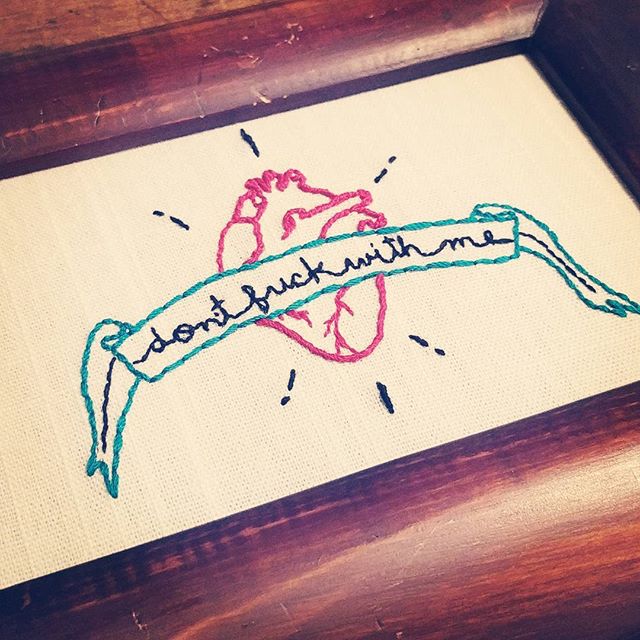 dont fuck with me